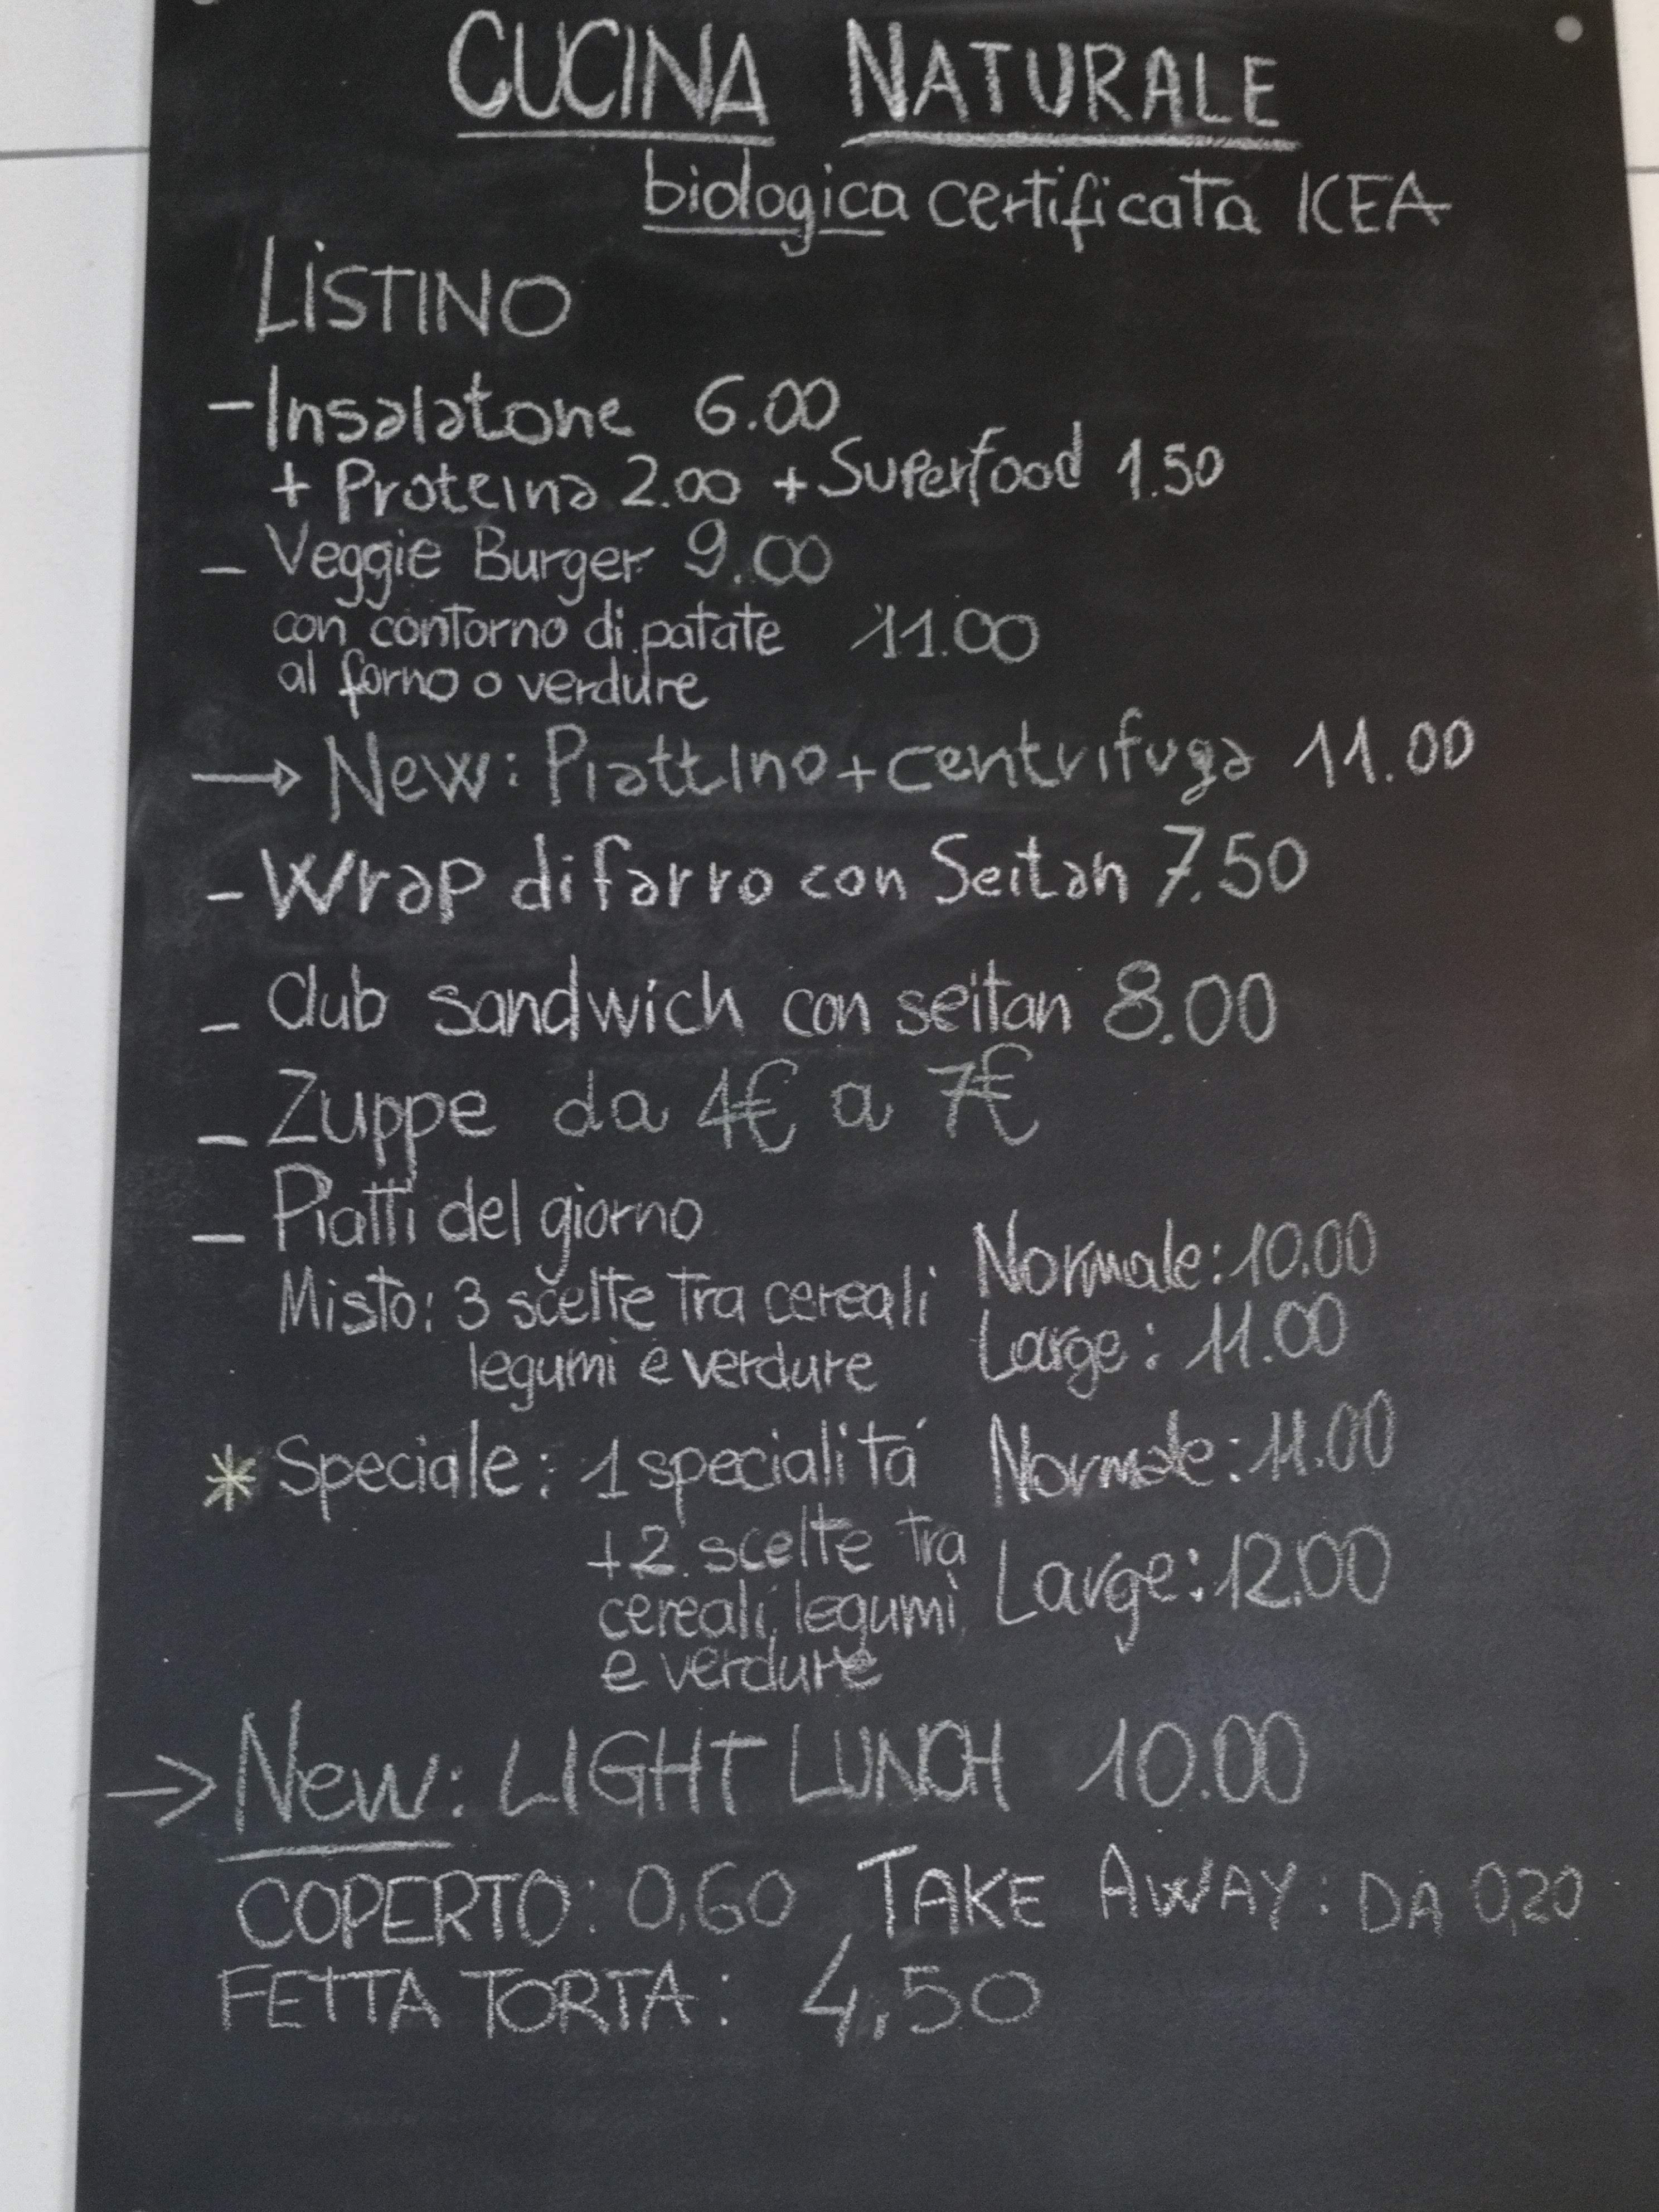 CUCINA NATURALE
biologica certificata ICEA
LISTINO
- Insalatone 6.00
+ Proteina 2.00 + Superfood 1.50
- Veggie Burger 9.00
con contorno di patate 11.00
al forno o verdure
→ New: Piattino + centrifuga 11.00
- Wrap di farro con Seitan 7.50
- Club sandwich con seitan 8.00
- Zuppe da 4€ a 7€
- Piatti del giorno
Misto: 3 scelte tra cereali Normale: 10.00
legumi e verdure Large: 11.00
* Speciale: 1 specialitá Normale: 11.00
+2 scelte tra
cereali, legumi, Large: 12.00
e verdure
→ New: LIGHT LUNCH 10.00
COPERTO: 0,60 TAKE AWAY: DA 0,20
FETTA TORTA: 4,50